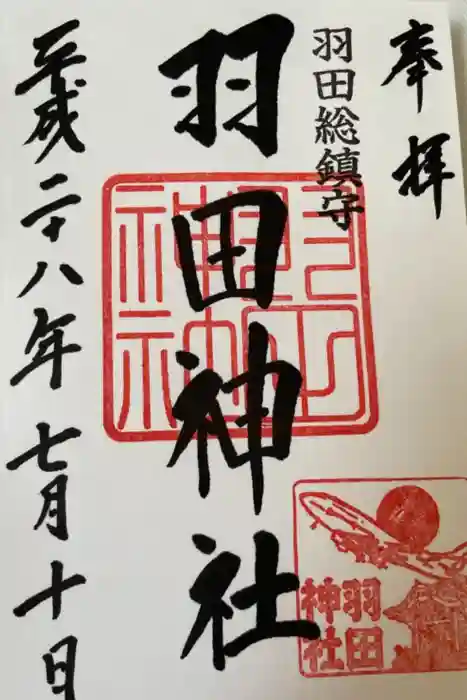 奉拝
羽田総鎮守
羽田神社
平成二十八年七月十日
羽田神社
羽田
神社